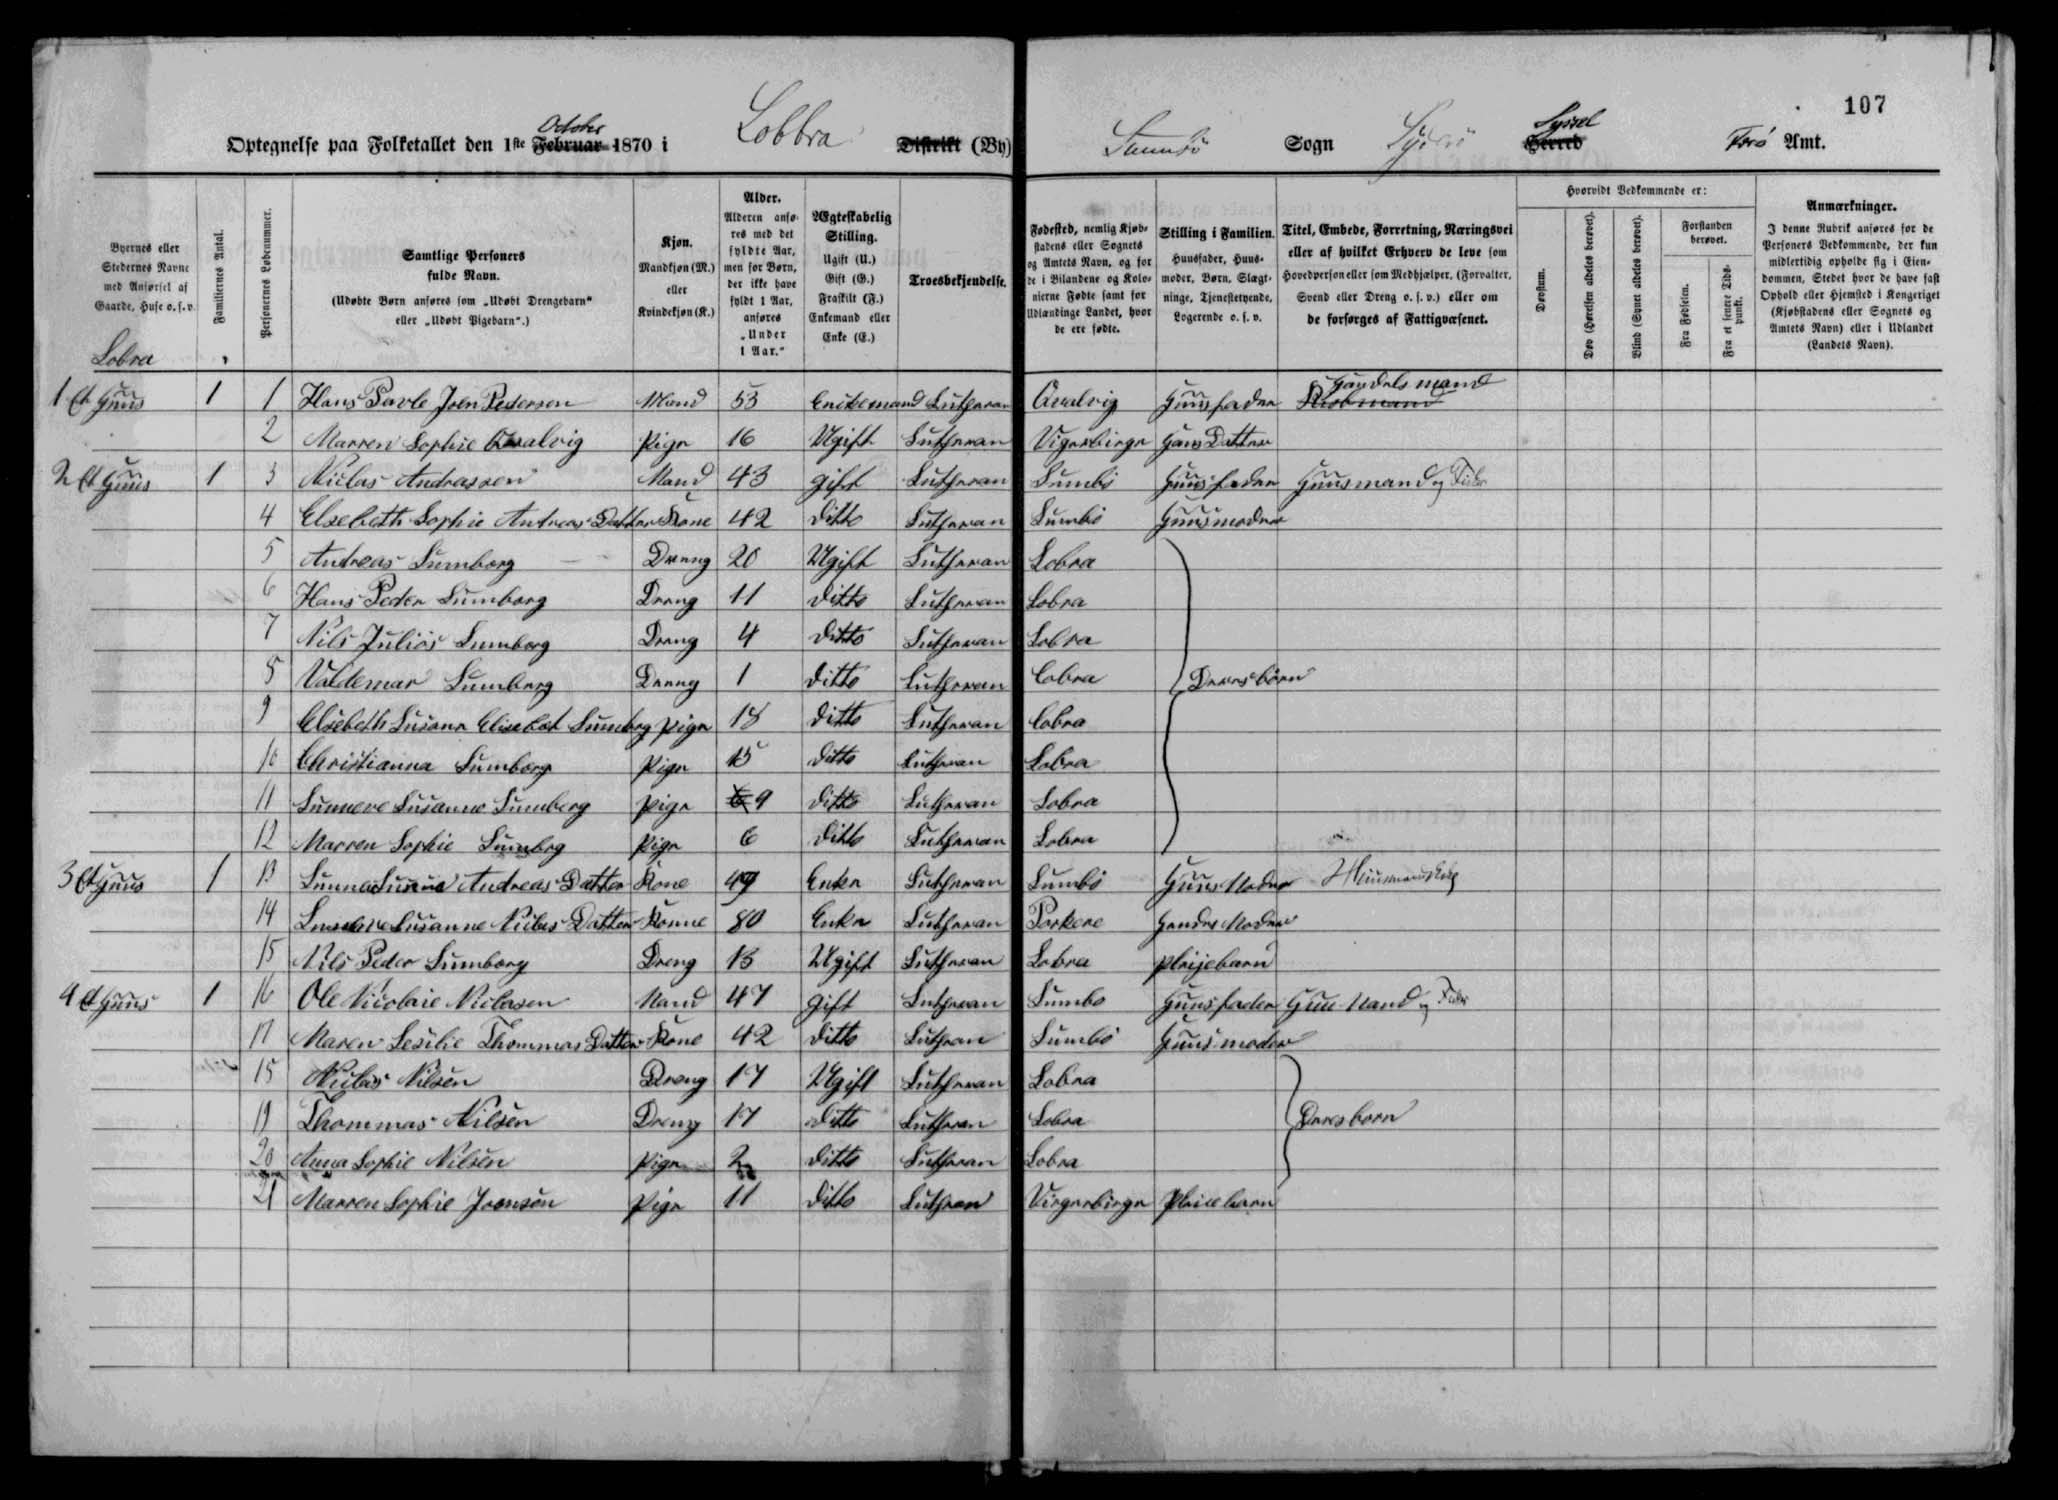 107
Optegnelse paa Folketallet den 1ste Februar October 1870 i Lobbra Distrikt (By) Sumbö Sogn Syderö Herred Syssel Færö Amt.
Byernes eller Stedernes Navne med Anførsel af Gaarde, Huse o. s. v.
Familiernes Antal.
Personernes Løbenummer.
Samtlige Personers fulde Navn.
(Udøbte Børn anføres som „Udøbt Drengebarn" eller „Udøbt Pigebarn".)
Kjøn.
Mandkjøn (M.) eller Kvindekjøn (K.)
Alder.
Alderen anføres med det fyldte Aar, men for Børn, der ikke have fyldt 1 Aar, anføres „Under 1 Aar."
Ægteskabelig Stilling.
Ugift (U.) Gift (G.) Fraskilt (F.) Enkemand eller Enke (E.)
Troesbekjendelse.
Fødested, nemlig Kjøbstadens eller Sognets og Amtets Navn, og for de i Bilandene og Kolonierne Fødte samt for Udlændinge Landet, hvor de ere fødte.
Stilling i Familien.
Huusfader, Huusmoder, Børn, Slægtninge, Tjenestetyende, Logerende o. s. v.
Titel, Embede, Forretning, Næringsvei eller af hvilket Erhverv de leve som Hovedperson eller som Medhjælper, (Forvalter, Svend eller Dreng o. s. v.) eller om de forsørges af Fattigvæsenet.
Hvorvidt Vedkommende er:
Døvstum.
Døv (Hørelsen aldeles berøvet).
Blind (Synet aldeles berøvet).
Forstanden berøvet.
Fra Fødselen.
Fra et senere Tidspunkt.
Anmærkninger.
I denne Rubrik anføres for de Personers Vedkommende, der kun midlertidig opholde sig i Eiendommen, Stedet hvor de have fast Ophold eller Hjemsted i Kongeriget (Kjøbstadens eller Sognets og Amtets Navn) eller i Udlandet (Landets Navn).
Lobra
1 et Huus 1 1 Hans Pavle Joen Pedersen Mand 53 Enckemand Lutheran Qvalvig Huusfader Handelsmand
2 Marren Sophie Qvalvig Pige 16 Ugift Lutheran Vigerbirge Hans Datter
2 et Huus 1 3 Niclas Andreassen Mand 43 gift Lutheran Sumbö Huusfader Huusmand og Fisker
4 Elsebeth Sophie Andreas Datter Kone 42 ditto Lutheran Sumbö Huusmoder
5 Andreas Sumborg Dreng 20 Ugift Lutheran Lobra
6 Hans Peder Sumborg Dreng 11 ditto Lutheran Lobra
7 Nils Juliös Sumborg Dreng 4 ditto Lutheran Lobra
8 Valdemar Sumberg Dreng 1 ditto Lutheran Lobra Deresbörn
9 Elsebeth Susann Elisebet Sumberg pige 18 ditto Lutheran Lobra
10 Christianna Sumborg Pige 15 ditto Lutheran Lobra
11 Sunneve Susanne Sumberg pige 9 ditto Lutheran Lobra
12 Marren Sophie Sumbrg pige 6 ditto Lutheran Lobra
3 et Huus 1 13 Andreas Datter Kone 49 Enke Lutheran Sumbö Huus Moder
14 Susanne Niclas Datter Konne 80 Enke Lutheran Porkere Hendes Moder
15 Nils Peder Sumborg Dreng 13 Ugift Lutheran Lobra pleijebarn
4 et Huus 1 16 Ole Nicolaie Niclasen Mand 47 gift Lutheran Sumbo Huusfader Huusmand og Fisker
17 Maren Sesilie Thommas Datter Kone 42 ditto Luthran Sumbö Huusmoder
18 Niclas Nilsen Dreng 17 Ugift Lutheran Lobra
19 Thommas Nilsen Dreng 17 ditto Luthran Lobra Deresborn
20 Anna Sophie Nilsen pige 2 ditto Luthran Lobra
21 Marren Sophie Joensen Pige 11 ditto Luthran Virgerbirge Pleiebarn